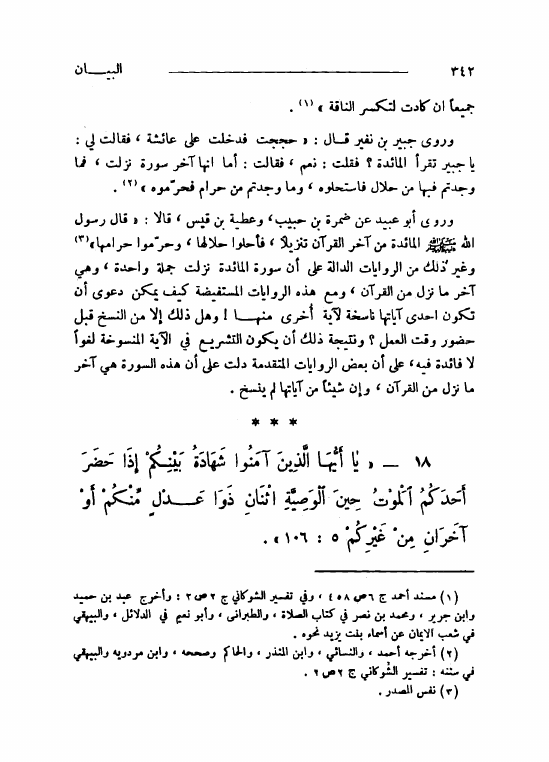 ٣٤٢ البيـــان
جميعاً ان كادت لتكسر الناقة » (١) .
وروى جبير بن نفير قـال : « حججت فدخلت على عائشة ، فقالت لي :
يا جبير تقرأ المائدة ؟ فقلت : نعم ، فقالت : أما انها آخر سورة نزلت ، فما
وجدتم فيها من حلال فاستحلوه ، وما وجدتم من حرام فحرّموه » (٢) .
وروى أبو عبيد عن ضمرة بن حبيب، وعطية بن قيس ، قالا : « قال رسول
الله ﷺ المائدة من آخر القرآن تنزيلاً ، فأحلوا حلالها ، وحرّموا حرامها»(٣)
وغير ذلك من الروايات الدالة على أن سورة المائدة نزلت جملة واحدة ، وهي
آخر ما نزل من القرآن ، ومع هذه الروايات المستفيضة كيف يمكن دعوى أن
تكون احدى آياتها ناسخة لآية أخرى منهـــا ! وهل ذلك إلا من النسخ قبل
حضور وقت العمل ؟ ونتيجة ذلك أن يكون التشريع في الآية المنسوخة لغواً
لا فائدة فيه، على أن بعض الروايات المتقدمة دلت على أن هذه السورة هي آخر
ما نزل من القرآن ، وإن شيئاً من آياتها لم ينسخ .
* * *
١٨ – « يَا أَيُّهَا الَّذِينَ آمَنُوا شَهَادَةُ بَيْنِكُمْ إِذَا حَضَرَ
أَحَدَكُمُ الْمَوْتُ حِينَ الْوَصِيَّةِ اثْنَانِ ذَوَا عَـــدْلٍ مِّنْكُمْ أَوْ
آخَرَانِ مِنْ غَيْرِكُمْ ٥ : ١٠٦ » .
(١) مسند أحمد ج ٦ص ٤٥٨ ، وفي تفسير الشوكاني ج ٢ص ٢ : وأخرج عبد بن حميد
وابن جرير ، ومحمد بن نصر في كتاب الصلاة ، والطبرانى ، وأبو نعيم في الدلائل ، والبيهقي
في شعب الايمان عن أسماء بنت يزيد نحوه .
(٢) أخرجه أحمد ، والنسائي ، وابن المنذر ، والحاكم وصححه ، وابن مردويه والبيهقي
في سننه : تفسير الشوكاني ج ٢ص ٢ .
(٣) نفس المصدر .